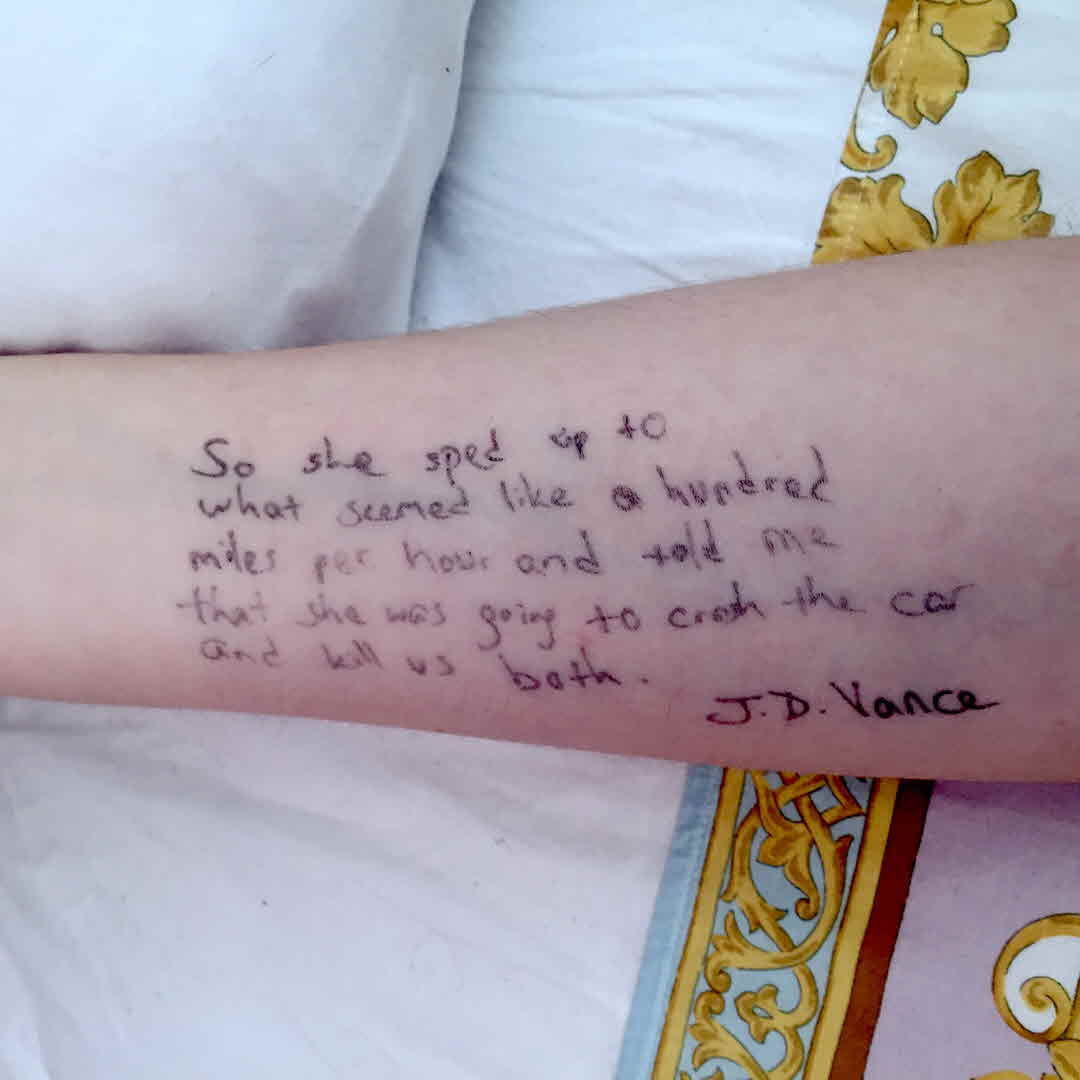 So she sped up to
what seemed like a hundred
miles per hour and told me
that she was going to crash the car
and kill us both.
J.D. Vance